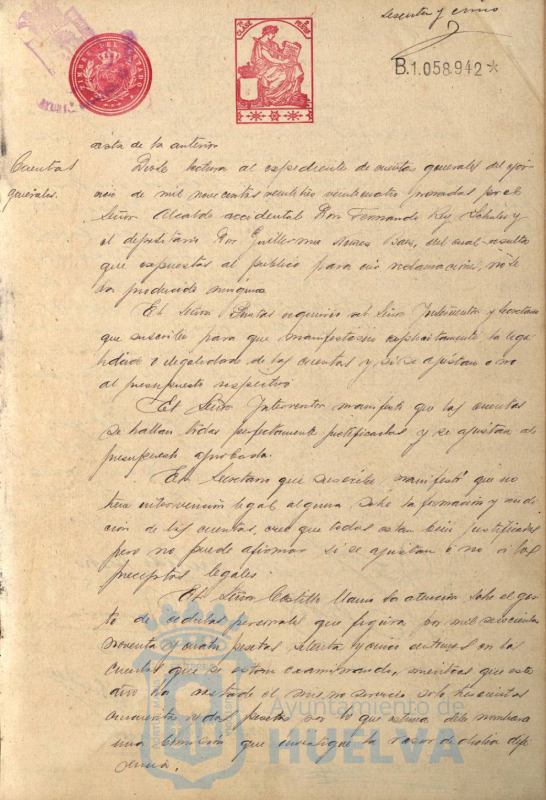 Sesenta y cinco
TIMBRE DEL ESTADO
CLASE
B.1.058.942*
acta de la anterior
Cuentas
generales.
Diose lectura al expediente de cuentas generales del ejer-
cicio de mil novecientos veintitres veinticuatro, formadas por el
Señor Alcalde accidental Don Fernando Rey y
el depositario Don Guillermo, del cual resulta
que expuestas al público para oir reclamaciones, no se
ha producido ninguna
El Señor requirió al Señor Interventor y Secretario
que suscribe para que manifestasen explicitamente la lega-
lidad o ilegalidad de las cuentas y si se ajustan o no
al presupuesto respectivo
El Señor Interventor manifestó que las cuentas
se hallan todas perfectamente justificadas y se ajustan al
presupuesto aprobado.
El Secretario que suscribe manifestó que no
tiene intervención legal alguna sobre la formación y rendi-
ción de las cuentas, cree que todas estan bien justificadas
pero no puede afirmar si se ajustan o no a los
preceptos legales.
El Señor Castilla llama la atención sobre el gas-
to de cedulas personales que figura por mil seiscientas
noventa y cuatro pesetas setenta y cinco centimos en las
cuentas que se estan examinando, mientras que este
año ha costado el mismo servicio solo trescientas
cincuenta y dos pesetas por lo que estima debe nombrarse
una Comisión que investigue la razon de dicha dife-
rencia.
Ayuntamiento de
HUELVA